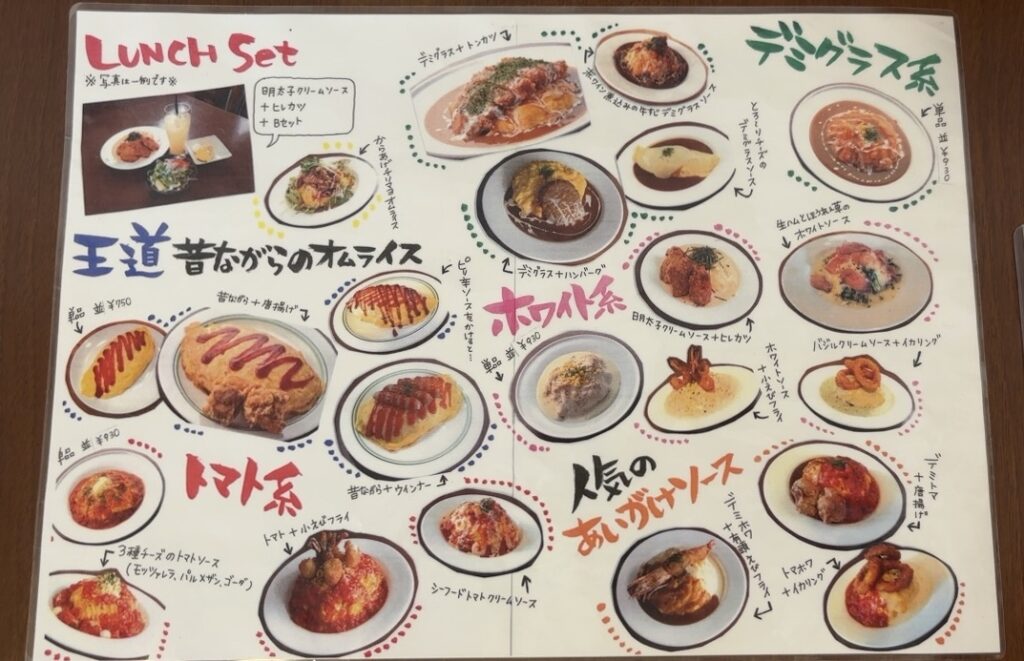 LUNCH Set
※写真は一例です※
明太子クリームソース
+ヒレカツ
+Bセット
からあげチリマヨオムライス
デミグラス系
デミグラス+トンカツ
赤ワイン煮込みの牛すじデミグラスソース
とろ〜りチーズの
デミグラスソース
単品 ¥930
デミグラス+ハンバーグ
王道 昔ながらのオムライス
単品 ¥750
昔ながら+唐揚げ
ピリ辛ソースをかけると…
昔ながら+ウインナー
ホワイト系
単品 ¥930
生ハムとほうれん草の
ホワイトソース
明太子クリームソース+ヒレカツ
ホワイトソース
+小えびフライ
バジルクリームソース+イカリング
トマト系
単品 ¥930
3種チーズのトマトソース
(モッツァレラ、パルメザン、ゴーダ)
トマト+小えびフライ
シーフードトマトクリームソース
人気の
あいがけソース
デミホワ
+有頭えびフライ
デミトマ
+唐揚げ
トマホワ
+イカリング